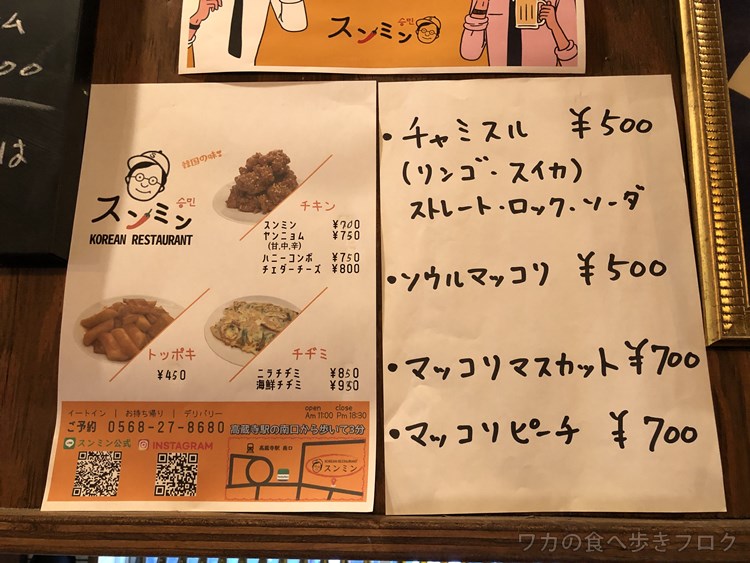 ム
00
は
スンミン 승민
韓国の味
スンミン 승민
KOREAN RESTAURANT
チキン
スンミン ¥700
ヤンニョム ¥750
(甘,中,辛)
ハニーコンボ ¥750
チェダーチーズ ¥800
トッポキ
¥450
チヂミ
ニラチヂミ ¥850
海鮮チヂミ ¥930
イートイン | お持ち帰り | デリバリー
ご予約 0568-27-8680
open close
Am 11:00 Pm 18:30
高蔵寺駅の南口から歩いて3分
スンミン公式 INSTAGRAM
高蔵寺駅 南口
KOREAN RESTAURANT
スンミン
・チャミスル ¥500
(リンゴ・スイカ)
ストレート・ロック・ソーダ
・ソウルマッコリ ¥500
・マッコリマスカット ¥700
・マッコリピーチ ¥700
ワカの食べ歩きブログ